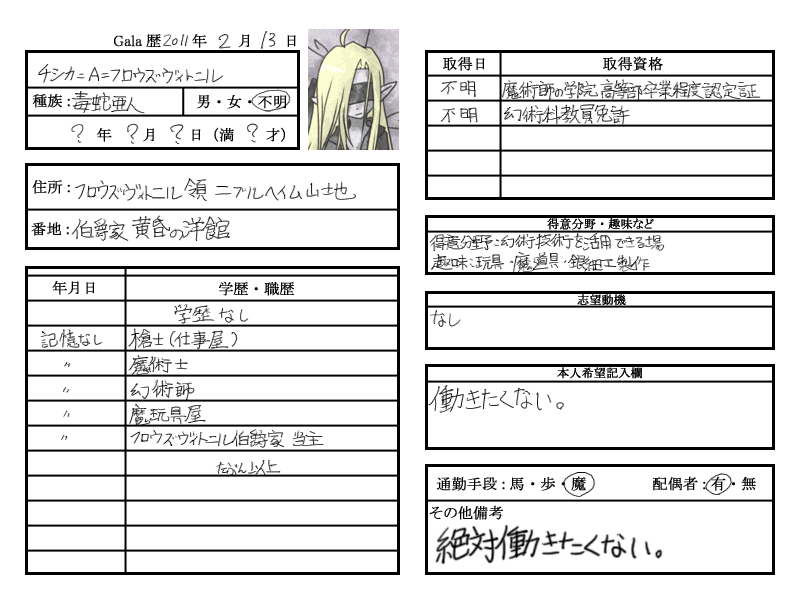 Gala 歴2011年 2月 13日
チシカ=A=フロウズ・ヴィトニル
種族:毒蛇亜人 男・女・不明
? 年 ? 月 ? 日 (満 ? 才)
住所:フロウズ・ヴィトニル 領 ニブルヘイム山地
番地:伯爵家 黄昏の洋館
年月日 学歴・職歴
学歴 なし
記憶なし 槍士(仕事屋)
〃 魔術士
〃 幻術師
〃 魔玩具屋
〃 フロウズ・ヴィトニル伯爵家 当主
たぶん以上
取得日 取得資格
不明 魔術師の学院 高等部卒業程度認定証
不明 幻術科教員免許
得意分野・趣味など
得意分野:幻術技術を活用できる場
趣味:玩具・魔道具・銀細工製作
志望動機
なし
本人希望記入欄
働きたくない。
通勤手段:馬・歩・魔 配偶者:有・無
その他備考
絶対働きたくない。